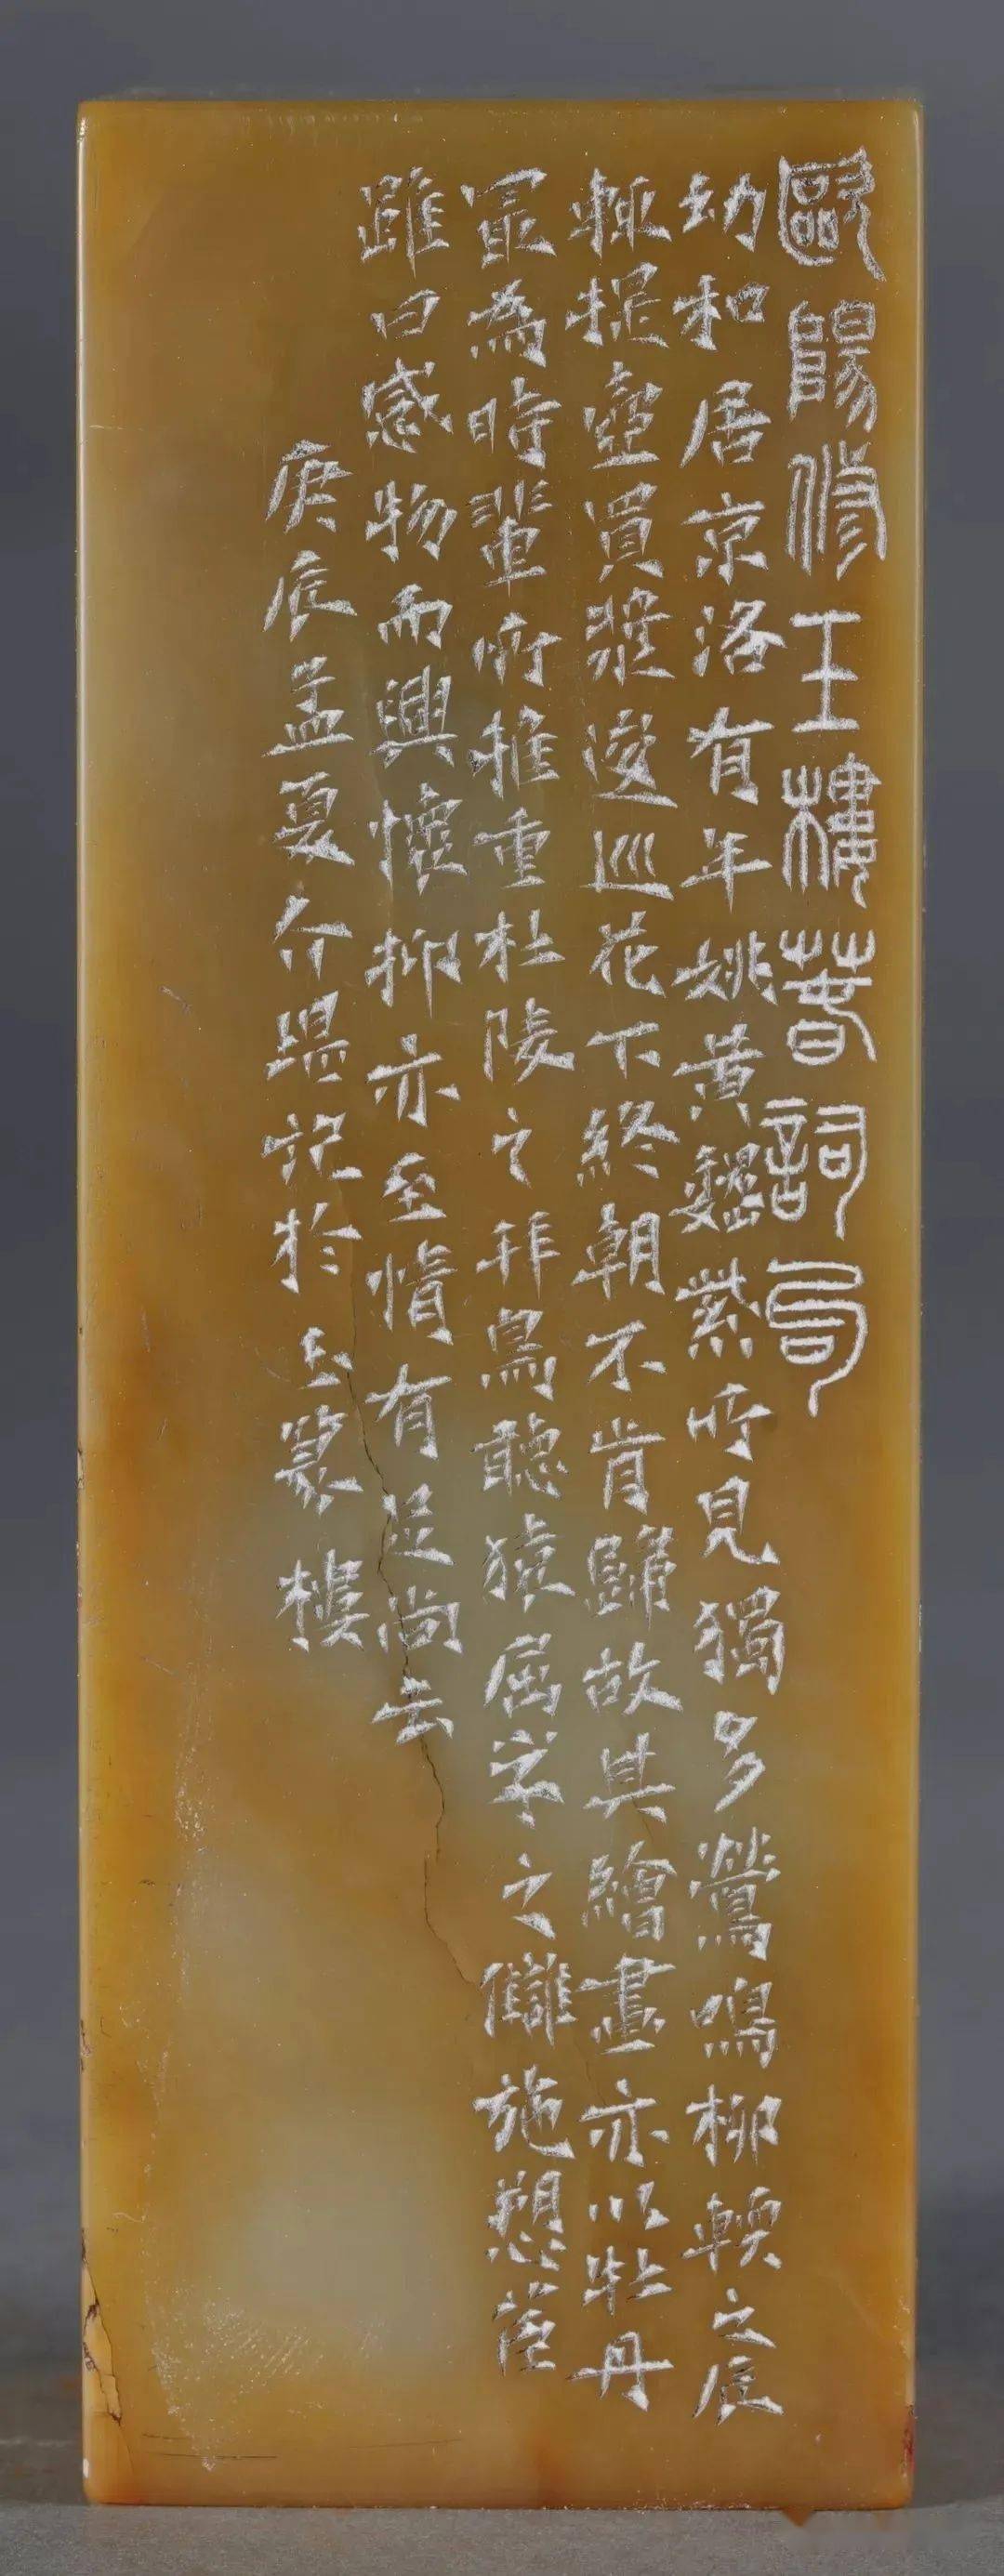 歐陽修玉樓春詞句
幼和居京洛有年姚黃魏紫所見獨多鶯鳴柳輭之辰
輒提壺買漿逡巡花下終朝不肯歸故其繪畫亦以牡丹
最為時輩所推重杜陵之拜鳥聽猿屈宋之讎施愬茝
雖曰感物而興懷抑亦至情有足尚云
庚辰孟夏介堪記於玉篆樓